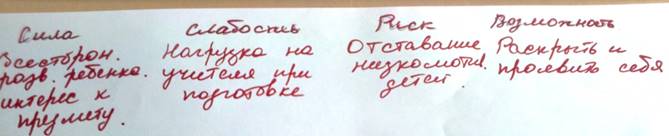 Сила Слабость Риск Возможность
Всесторон. Нагрузка на Отставание Раскрыть и
разв. ребенка. учителя при низкомотив. проявить себя
интерес к подготовке детей.
предмету.